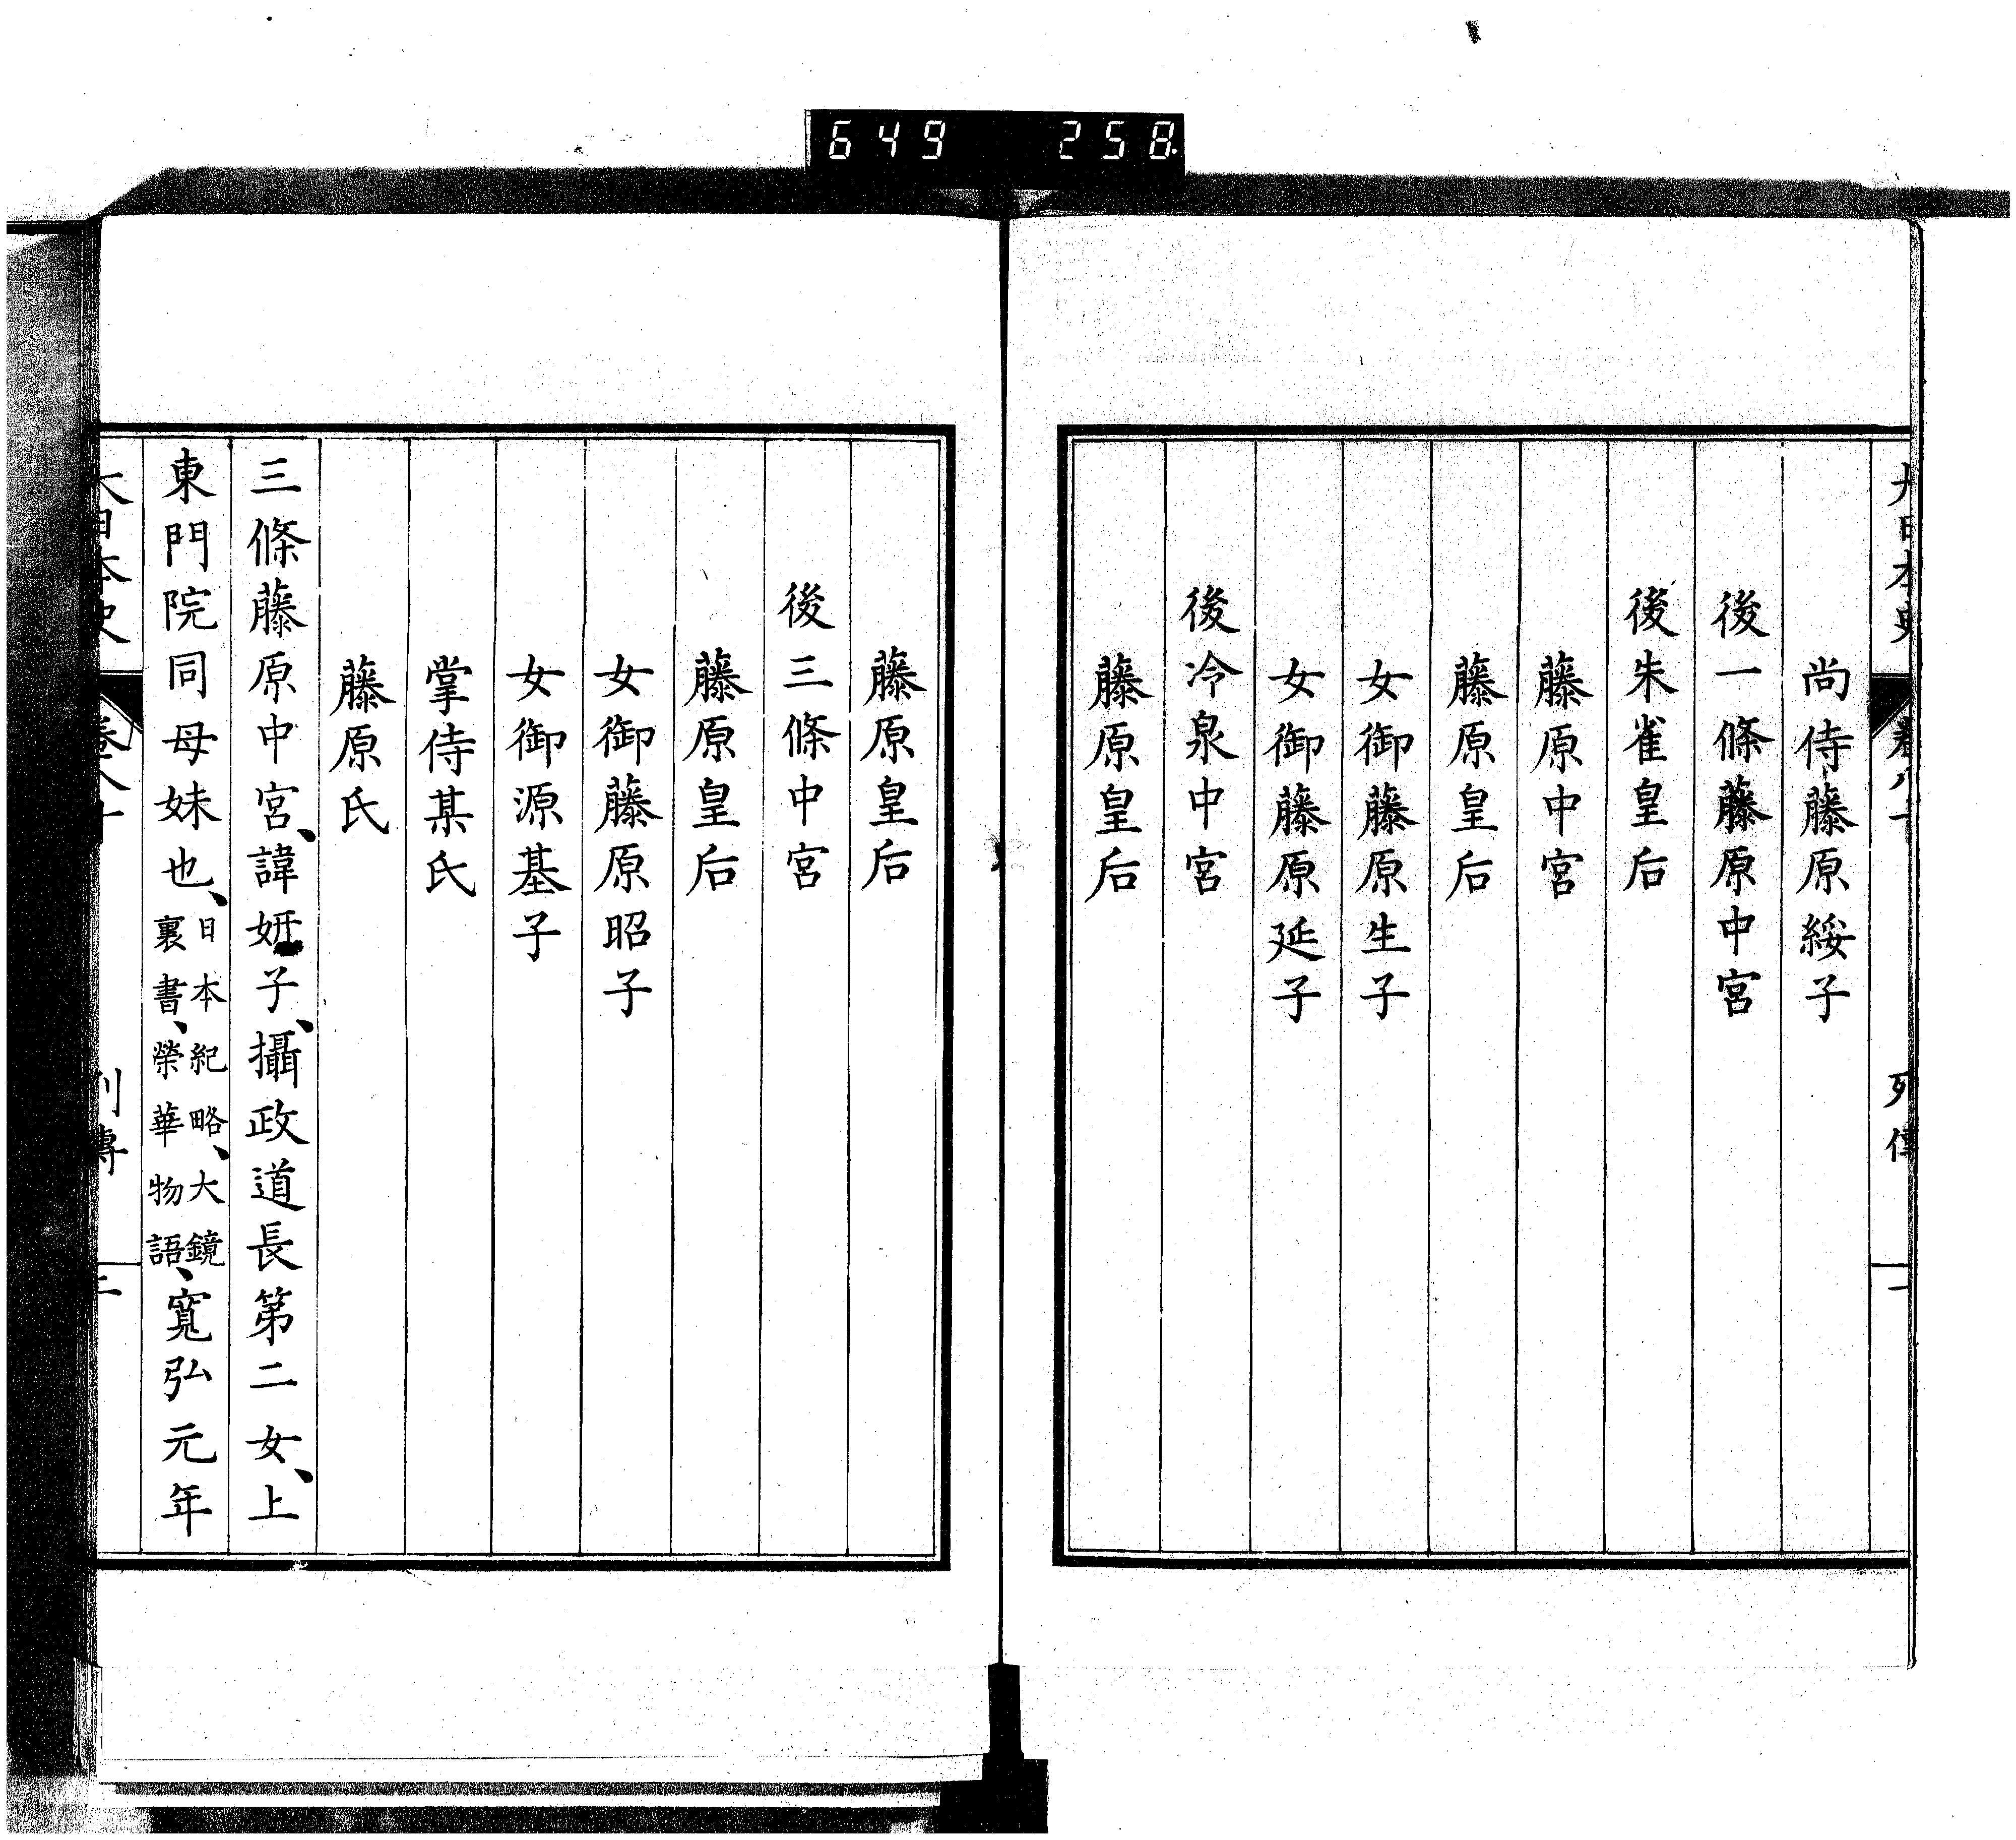 649 258
大日本史 卷八十 列傳 一
尚侍藤原綏子
後一條藤原中宮
後朱雀皇后
藤原中宮
藤原皇后
女御藤原生子
女御藤原延子
後冷泉中宮
藤原皇后
藤原皇后
後三條中宮
藤原皇后
女御藤原昭子
女御源基子
掌侍某氏
藤原氏
三條藤原中宮、諱妍子、攝政道長第二女、上
東門院同母妹也、日本紀略、大鏡裏書、榮華物語、寬弘元年
大日本史 卷八十 列傳 二